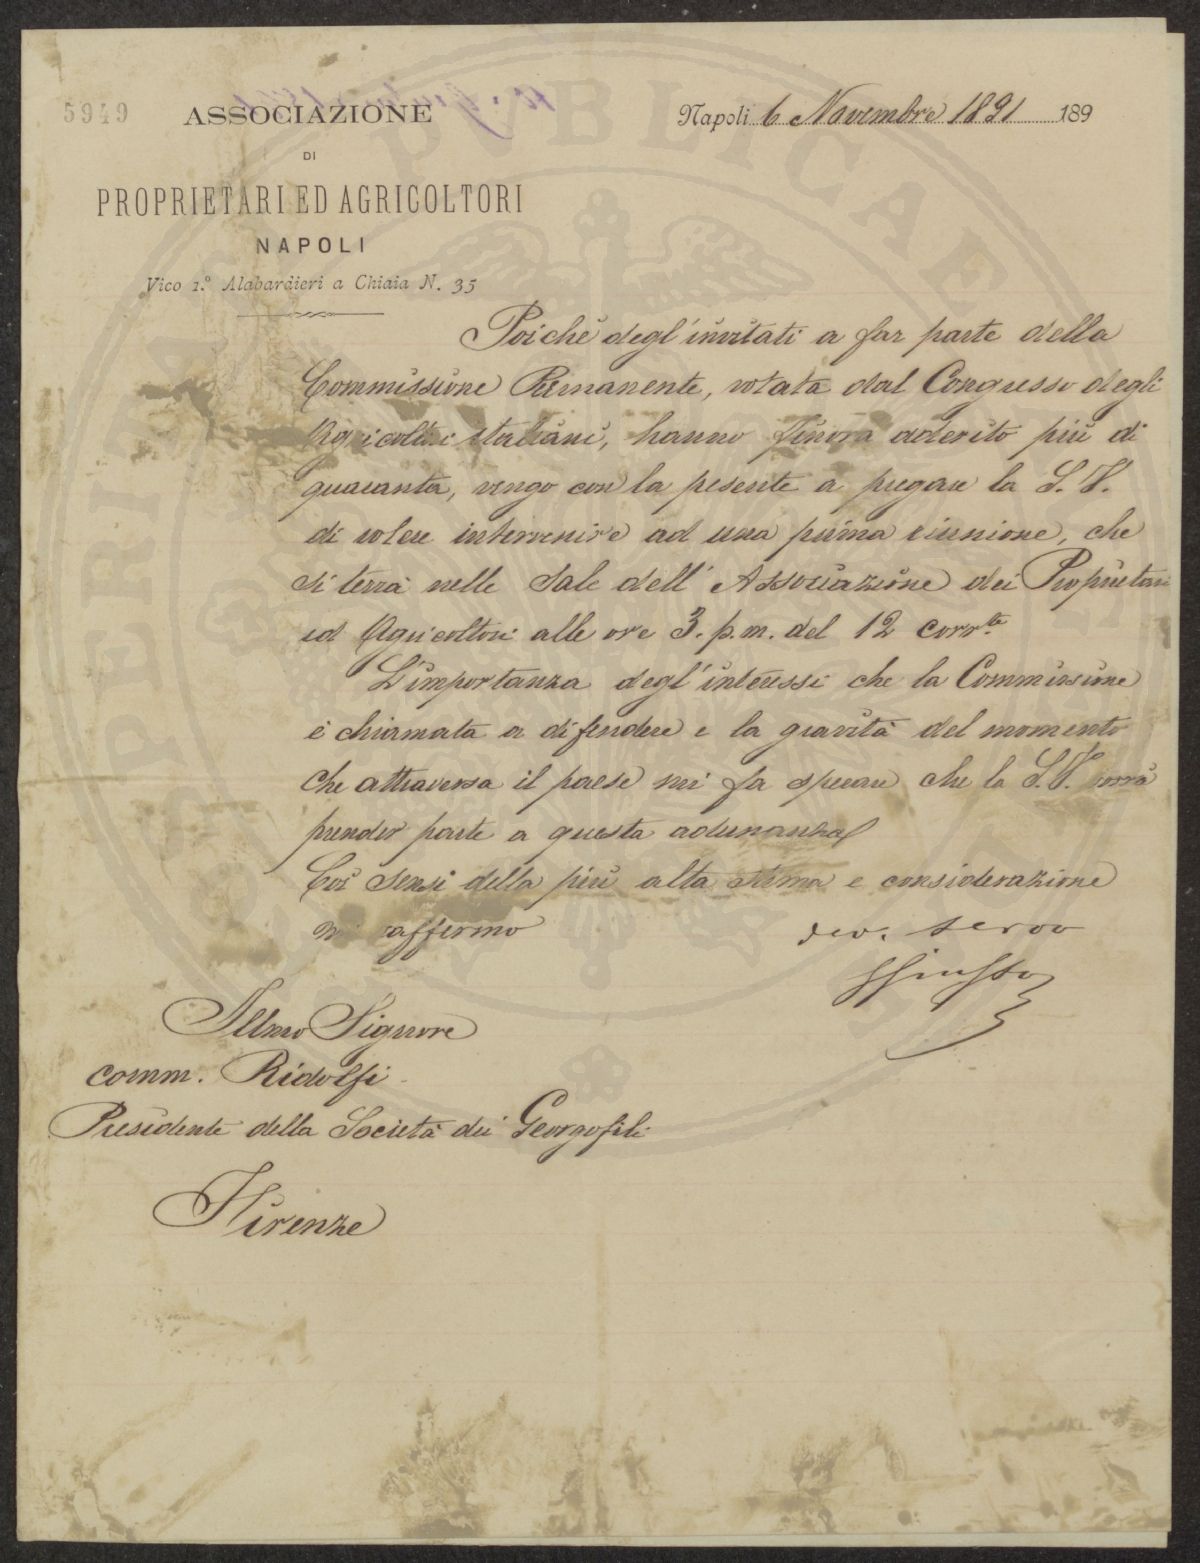 5949
ASSOCIAZIONE
DI
PROPRIETARI ED AGRICOLTORI
NAPOLI
Vico 1.º Alabardieri a Chiaia N. 35
Napoli 6 Novembre 1891 189
Poichè degl'invitati a far parte della
Commissione Permanente, votata dal Congresso degli
Agricoltori italiani, hanno finora aderito più di
quaranta, vengo con la presente a pregare la S. V.
di volere intervenire ad una prima riunione, che
si terrà nelle Sale dell'Associazione dei Proprietari
ed Agricoltori alle ore 3. p.m. del 12 corr.te
L'importanza degl'interessi che la Commissione
è chiamata a difendere e la gravità del momento
che attraversa il paese mi fa sperare che la S. V. vorrà
prender parte a questa adunanza
Coi sensi della più alta stima e considerazione
mi raffermo
dev. servo
GGiusso
Illmo Signore
comm. Ridolfi
Presidente della Società dei Georgofili
Firenze